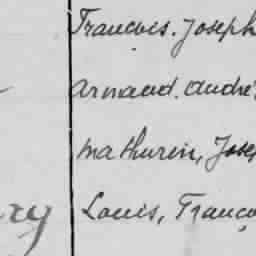 François. Joseph
Arnaud. André
Mathurin, Jose
ry Louis, Franço